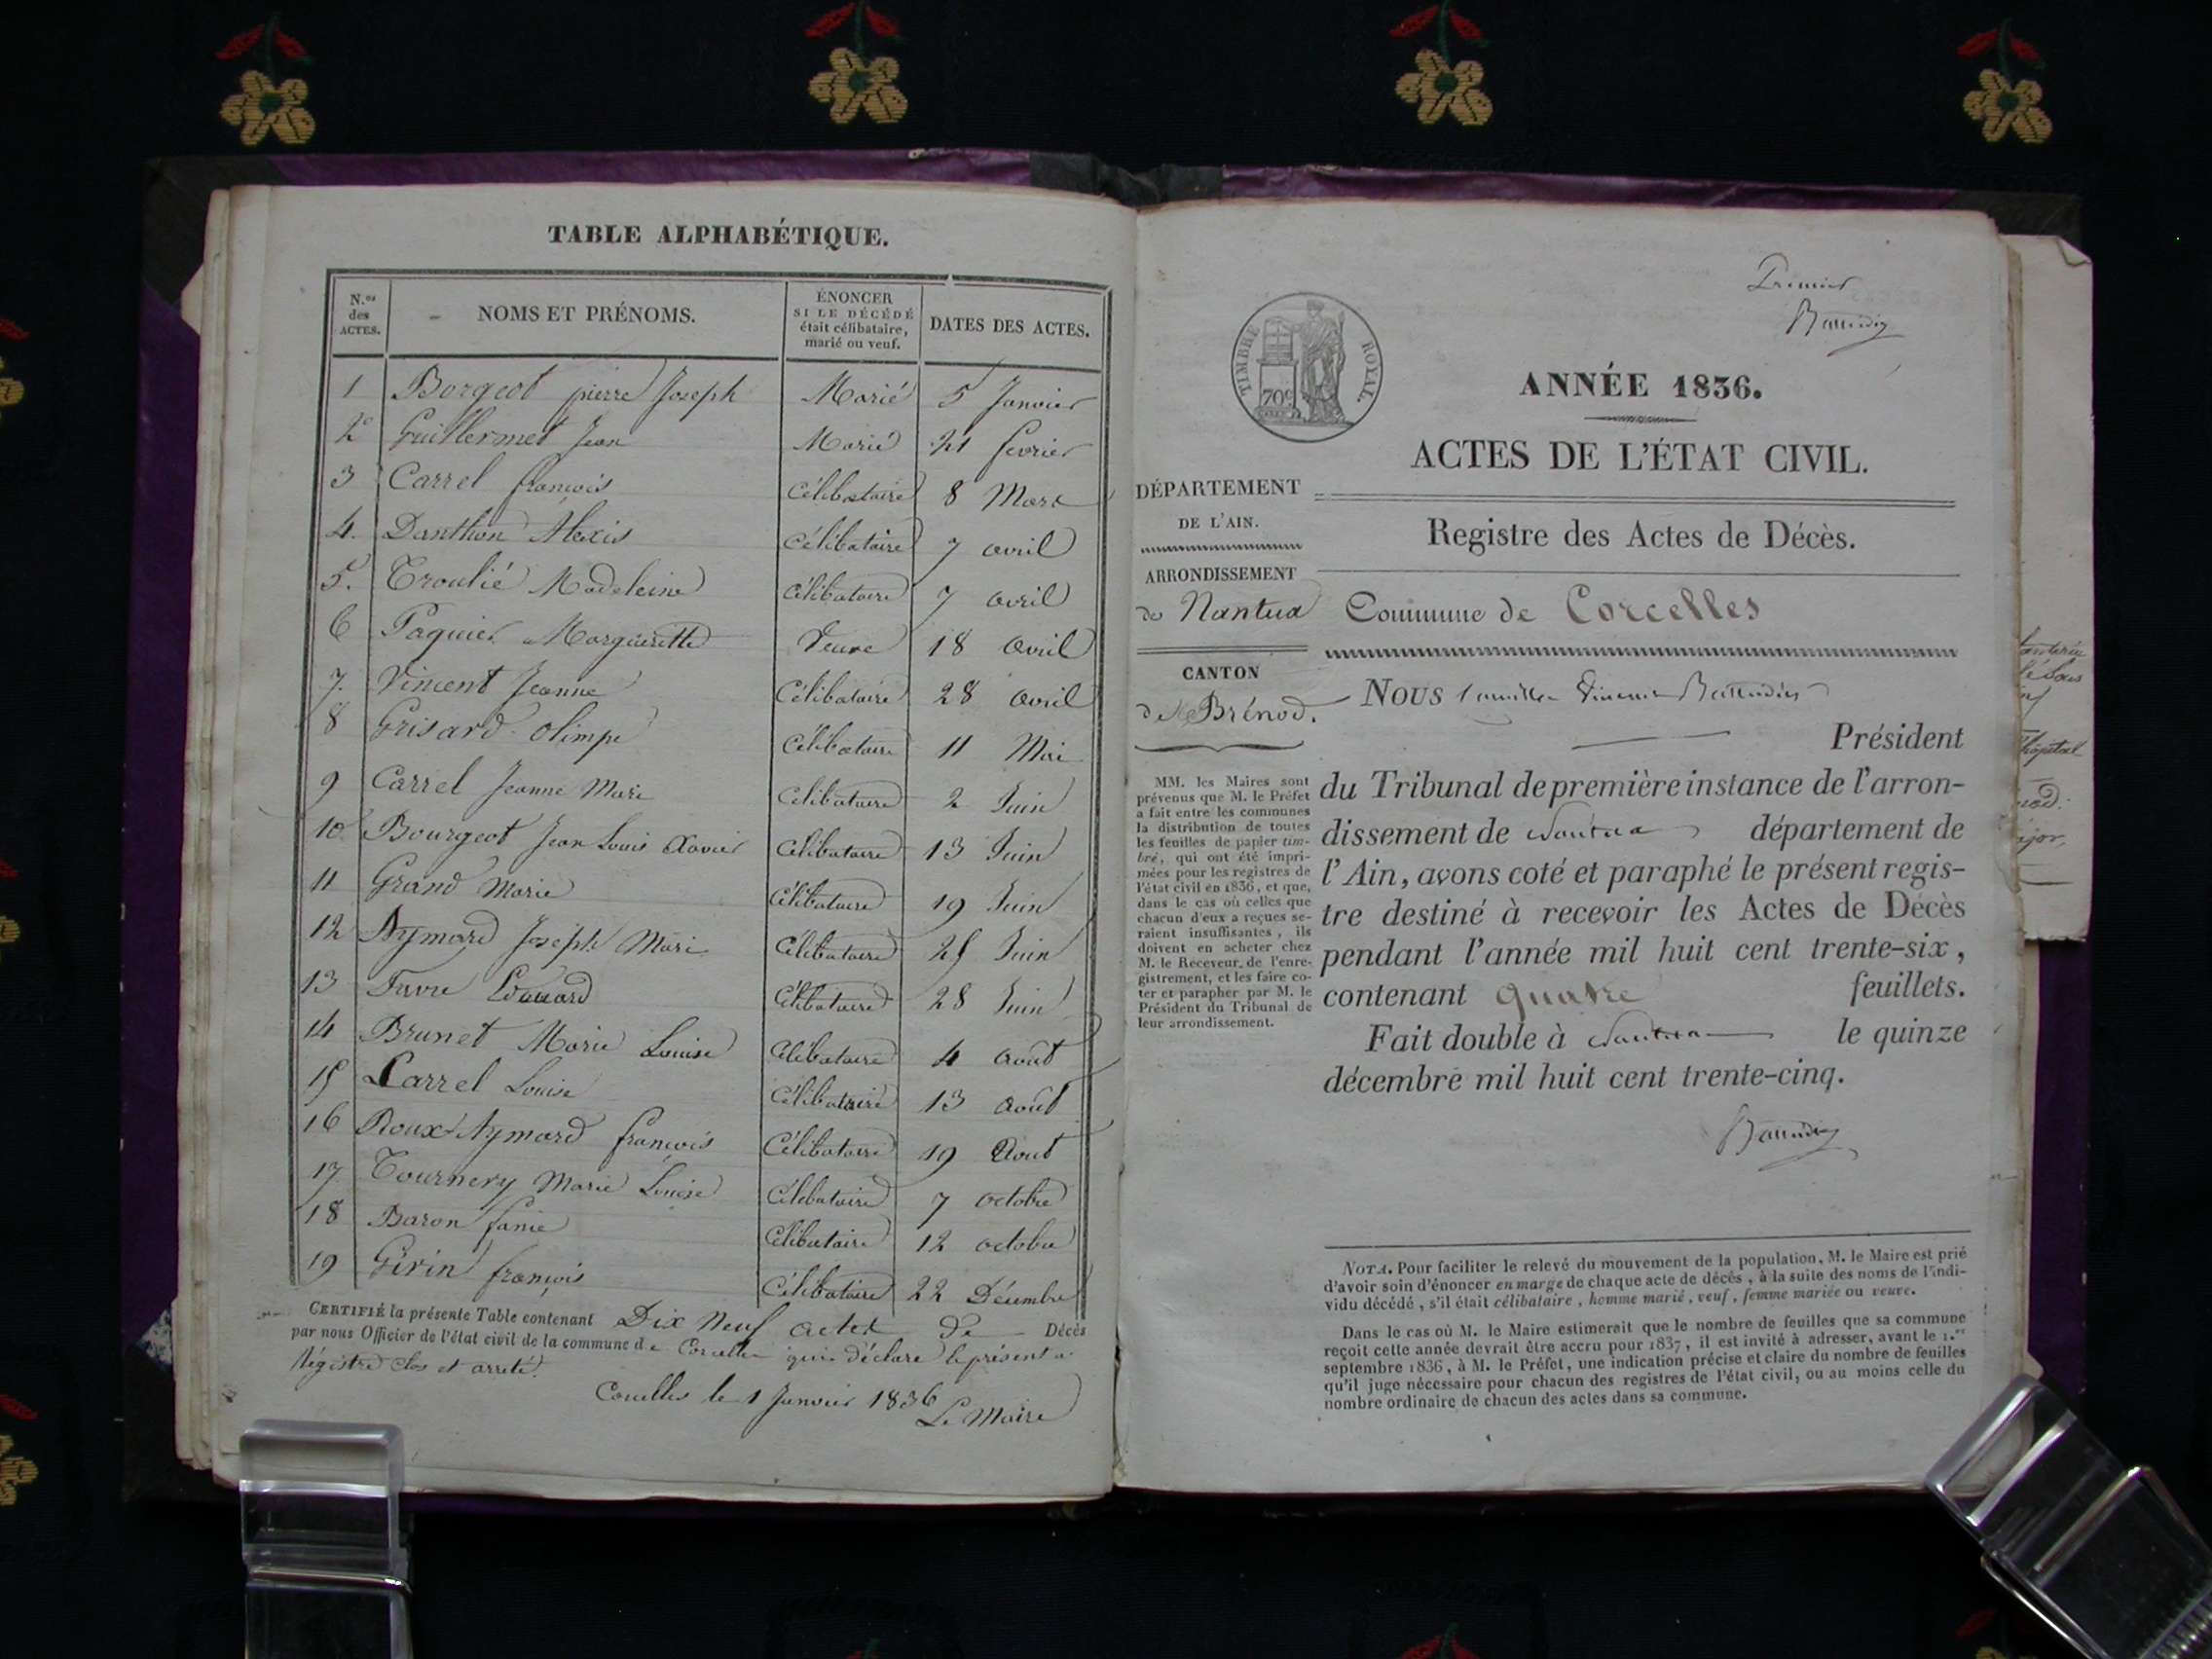 TABLE ALPHABÉTIQUE.
N.os des ACTES.
NOMS ET PRÉNOMS.
ÉNONCER SI LE DÉCÉDÉ était célibataire, marié ou veuf.
DATES DES ACTES.
1 Borgeot pierre Joseph Marié 5 Janvier
2 Guillermet Jean Marié 21 fevrier
3 Carrel françois Célibataire 8 Mars
4. Danthon Alexis Célibataire 7 avril
5. Troulié Madeleine Célibataire 7 avril
6 Paquier Marguerette Veuve 18 avril
7. Vincent Jeanne Célibataire 28 avril
8 Grisard Olimpe Célibataire 11 Mai
9 Carrel Jeanne Marie Célibataire 2 Juin
10 Bourgeot Jean Louis Xavier Célibataire 13 Juin
11 Grand Marie Célibataire 19 Juin
12 Aymard Joseph Marie Célibataire 25 Juin
13 Favre Edouard Célibataire 28 Juin
14 Brunet Marie Louise Célibataire 4 Août
15 Carrel Louise Célibataire 13 Août
16 Roux-Aymard françois Célibataire 19 Aout
17 Tournery Marie Louise Célibataire 7 octobre
18 Baron fanie Célibataire 12 octobre
19 Girin françois Célibataire 22 Décembre
CERTIFIÉ la présente Table contenant Dix Neuf actes de Décès
par nous Officier de l'état civil de la commune de Corcelles qui déclare le présent
Régistre clos et arreté.
Corcelles le 1 Janvier 1836
Le Maire
Premier
TIMBRE ROYAL.
70c
ANNÉE 1836.
ACTES DE L'ÉTAT CIVIL.
DÉPARTEMENT
DE L'AIN.
Registre des Actes de Décès.
ARRONDISSEMENT
de Nantua
Commune de Corcelles
CANTON
de Brénod.
Nous
Président
du Tribunal de première instance de l'arron-
dissement de Nantua département de
l'Ain, avons coté et paraphé le présent regis-
tre destiné à recevoir les Actes de Décès
pendant l'année mil huit cent trente-six,
contenant quatre feuillets.
Fait double à Nantua le quinze
décembre mil huit cent trente-cinq.
MM. les Maires sont
prévenus que M. le Préfet
a fait entre les communes
la distribution de toutes
les feuilles de papier tim-
bré, qui ont été impri-
mées pour les registres de
l'état civil en 1836, et que,
dans le cas où celles que
chacun d'eux a reçues se-
raient insuffisantes, ils
doivent en acheter chez
M. le Receveur de l'enre-
gistrement, et les faire co-
ter et parapher par M. le
Président du Tribunal de
leur arrondissement.
NOTA. Pour faciliter le relevé du mouvement de la population, M. le Maire est prié
d'avoir soin d'énoncer en marge de chaque acte de décès, à la suite des noms de l'indi-
vidu décédé, s'il était célibataire, homme marié, veuf, femme mariée ou veuve.
Dans le cas où M. le Maire estimerait que le nombre de feuilles que sa commune
reçoit cette année devrait être accru pour 1837, il est invité à adresser, avant le 1.er
septembre 1836, à M. le Préfet, une indication précise et claire du nombre de feuilles
qu'il juge nécessaire pour chacun des registres de l'état civil, ou au moins celle du
nombre ordinaire de chacun des actes dans sa commune.